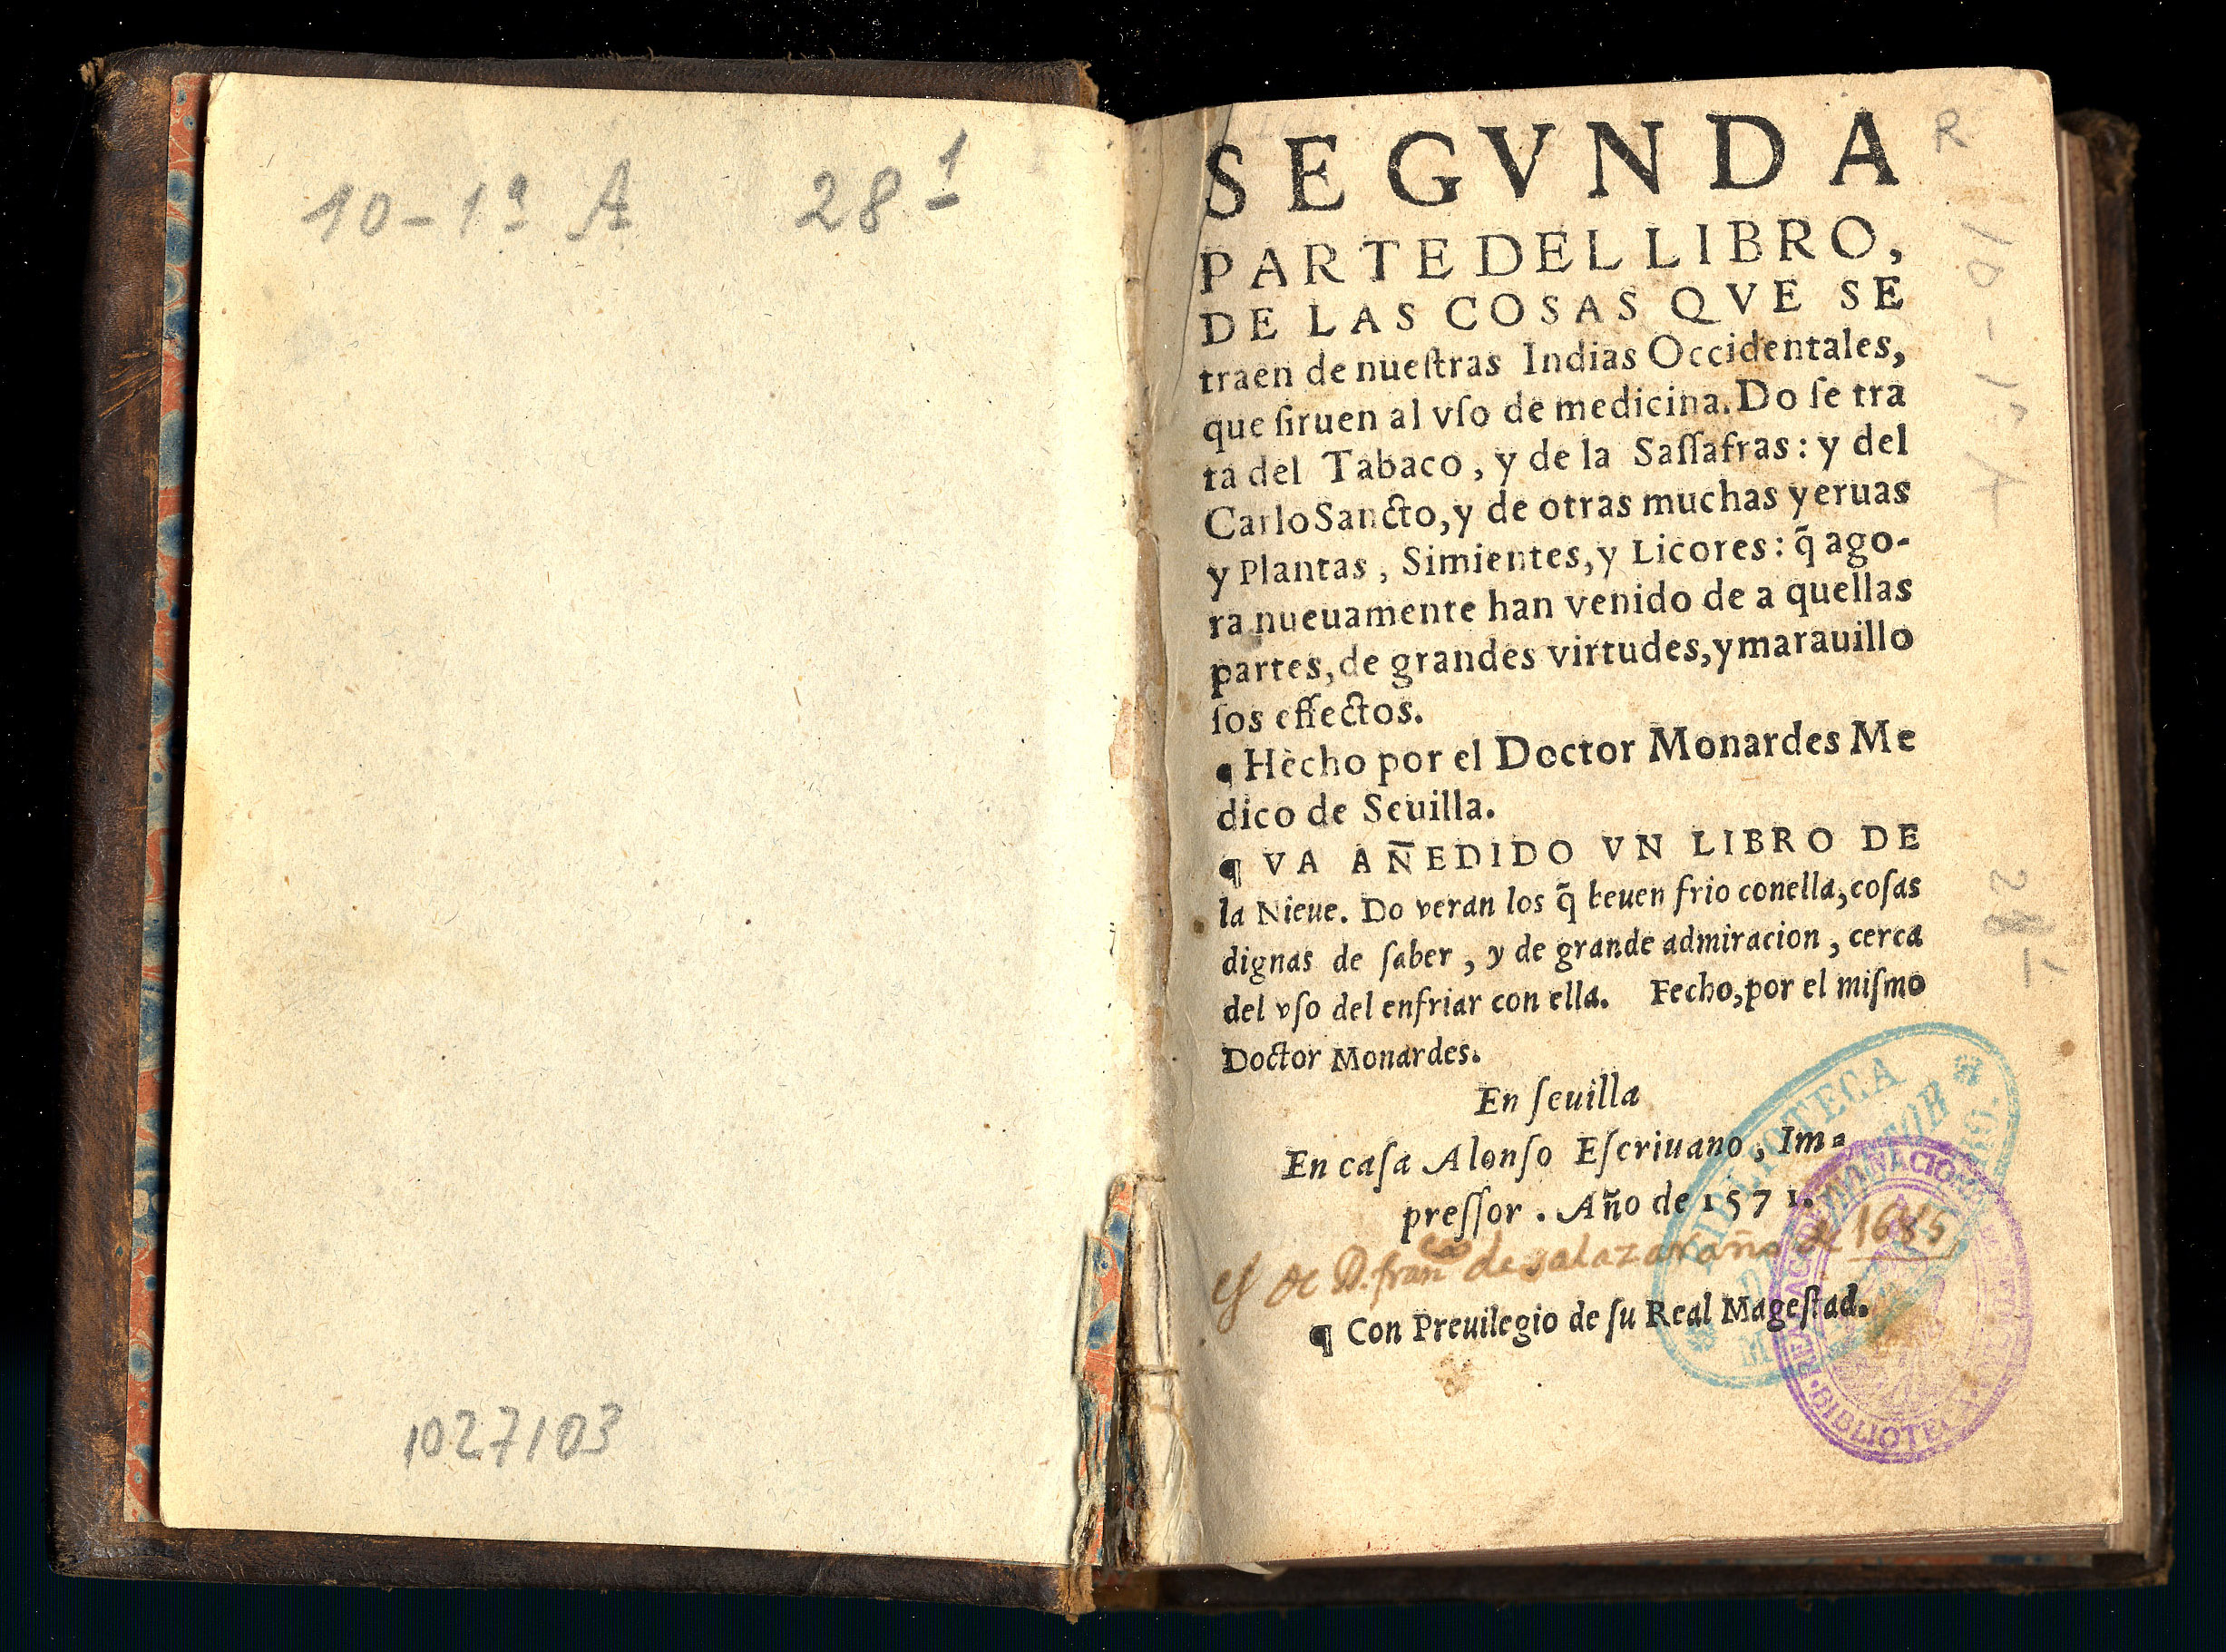 10-1ª A 28 1
1027103
SEGVNDA
R
PARTE DEL LIBRO,
DE LAS COSAS QVE SE
traen de nueſtras Indias Occidentales,
que ſiruen al vſo de medicina. Do ſe tra
ta del Tabaco, y de la Saſſafras: y del
Carlo Sancto, y de otras muchas yeruas
y Plantas, Simientes, y Licores: q̃ ago-
ra nueuamente han venido de a quellas
partes, de grandes virtudes, y marauillo
ſos effectos.
¶ Hecho por el Doctor Monardes Me
dico de Seuilla.
¶ VA AÑEDIDO VN LIBRO DE
la Nieue. Do veran los q̃ beuen frio con ella, coſas
dignas de ſaber, y de grande admiracion, cerca
del vſo del enfriar con ella. Fecho, por el miſmo
Doctor Monardes.
En ſeuilla
En caſa Alonſo Eſcriuano, Im=
preſſor. Año de 1571.
es de D. franco de salazar año de 1685
¶ Con Preuilegio de ſu Real Mageſtad.
10-1ª A
28-1
BIBLIOTECA
BIBLIOTECA NACIONAL